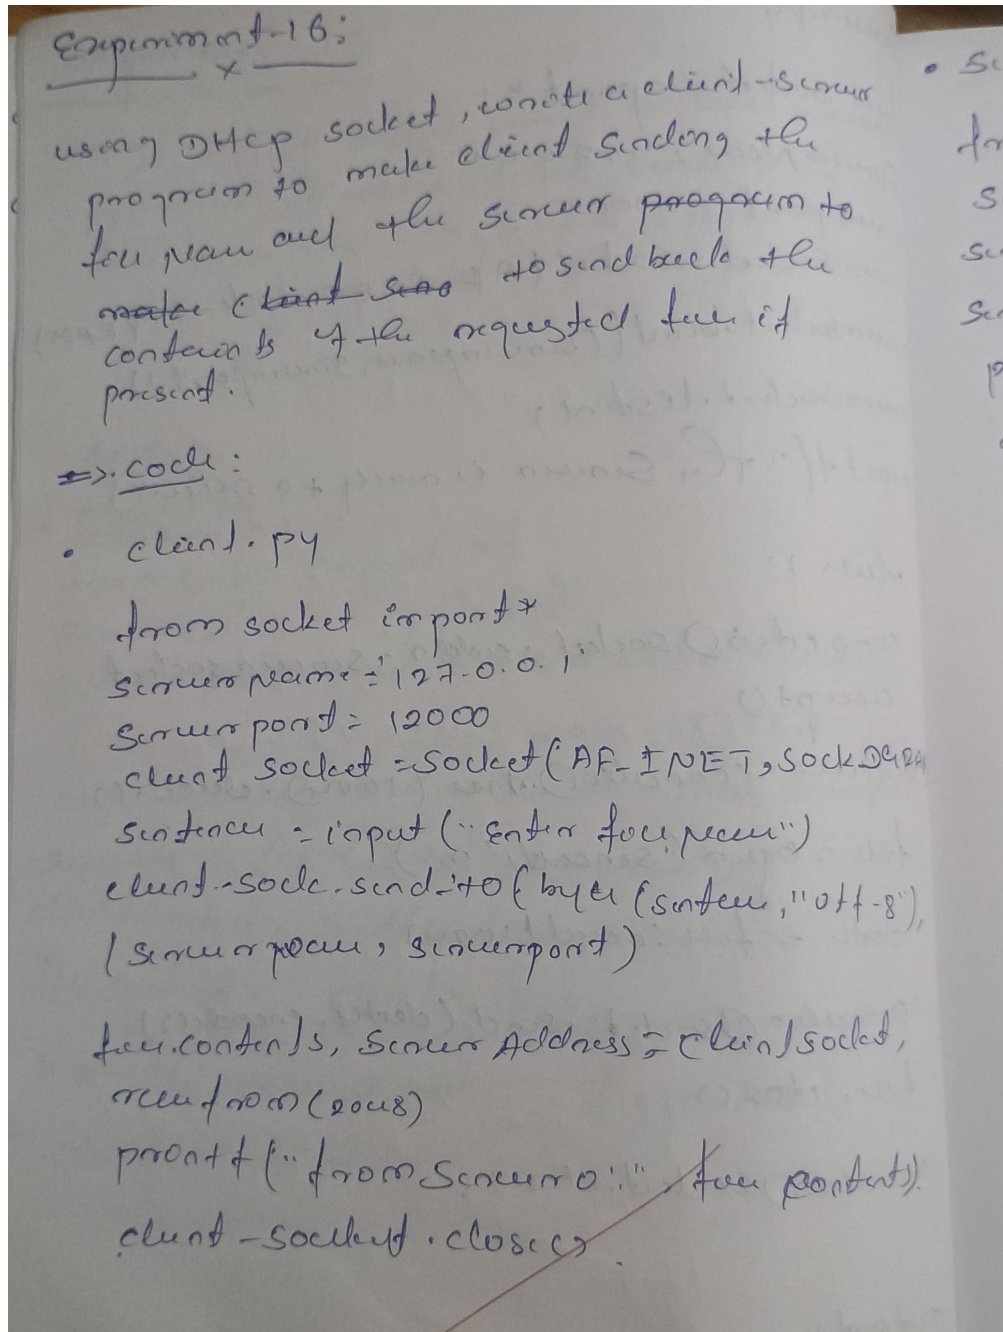 Experiment-16:
using DHCP socket, write a client-server
program to make client sending the
file name and the server program to
make client send to send back the
contents of the requested file if
present.
=>. code:
• client.py
from socket import*
servername = '127.0.0.1'
serverport = 12000
client socket = socket (AF_INET, SOCK DGRA
sentence = input ("Enter file name")
client-sock.send-to (bytes (sentence, "utf-8"),
(servername, serverport)
file contents, Server Address = client socket,
recvfrom (2048)
printf ("from Server:" file contents).
client-socket.close()
• se
fr
s
se
se
p